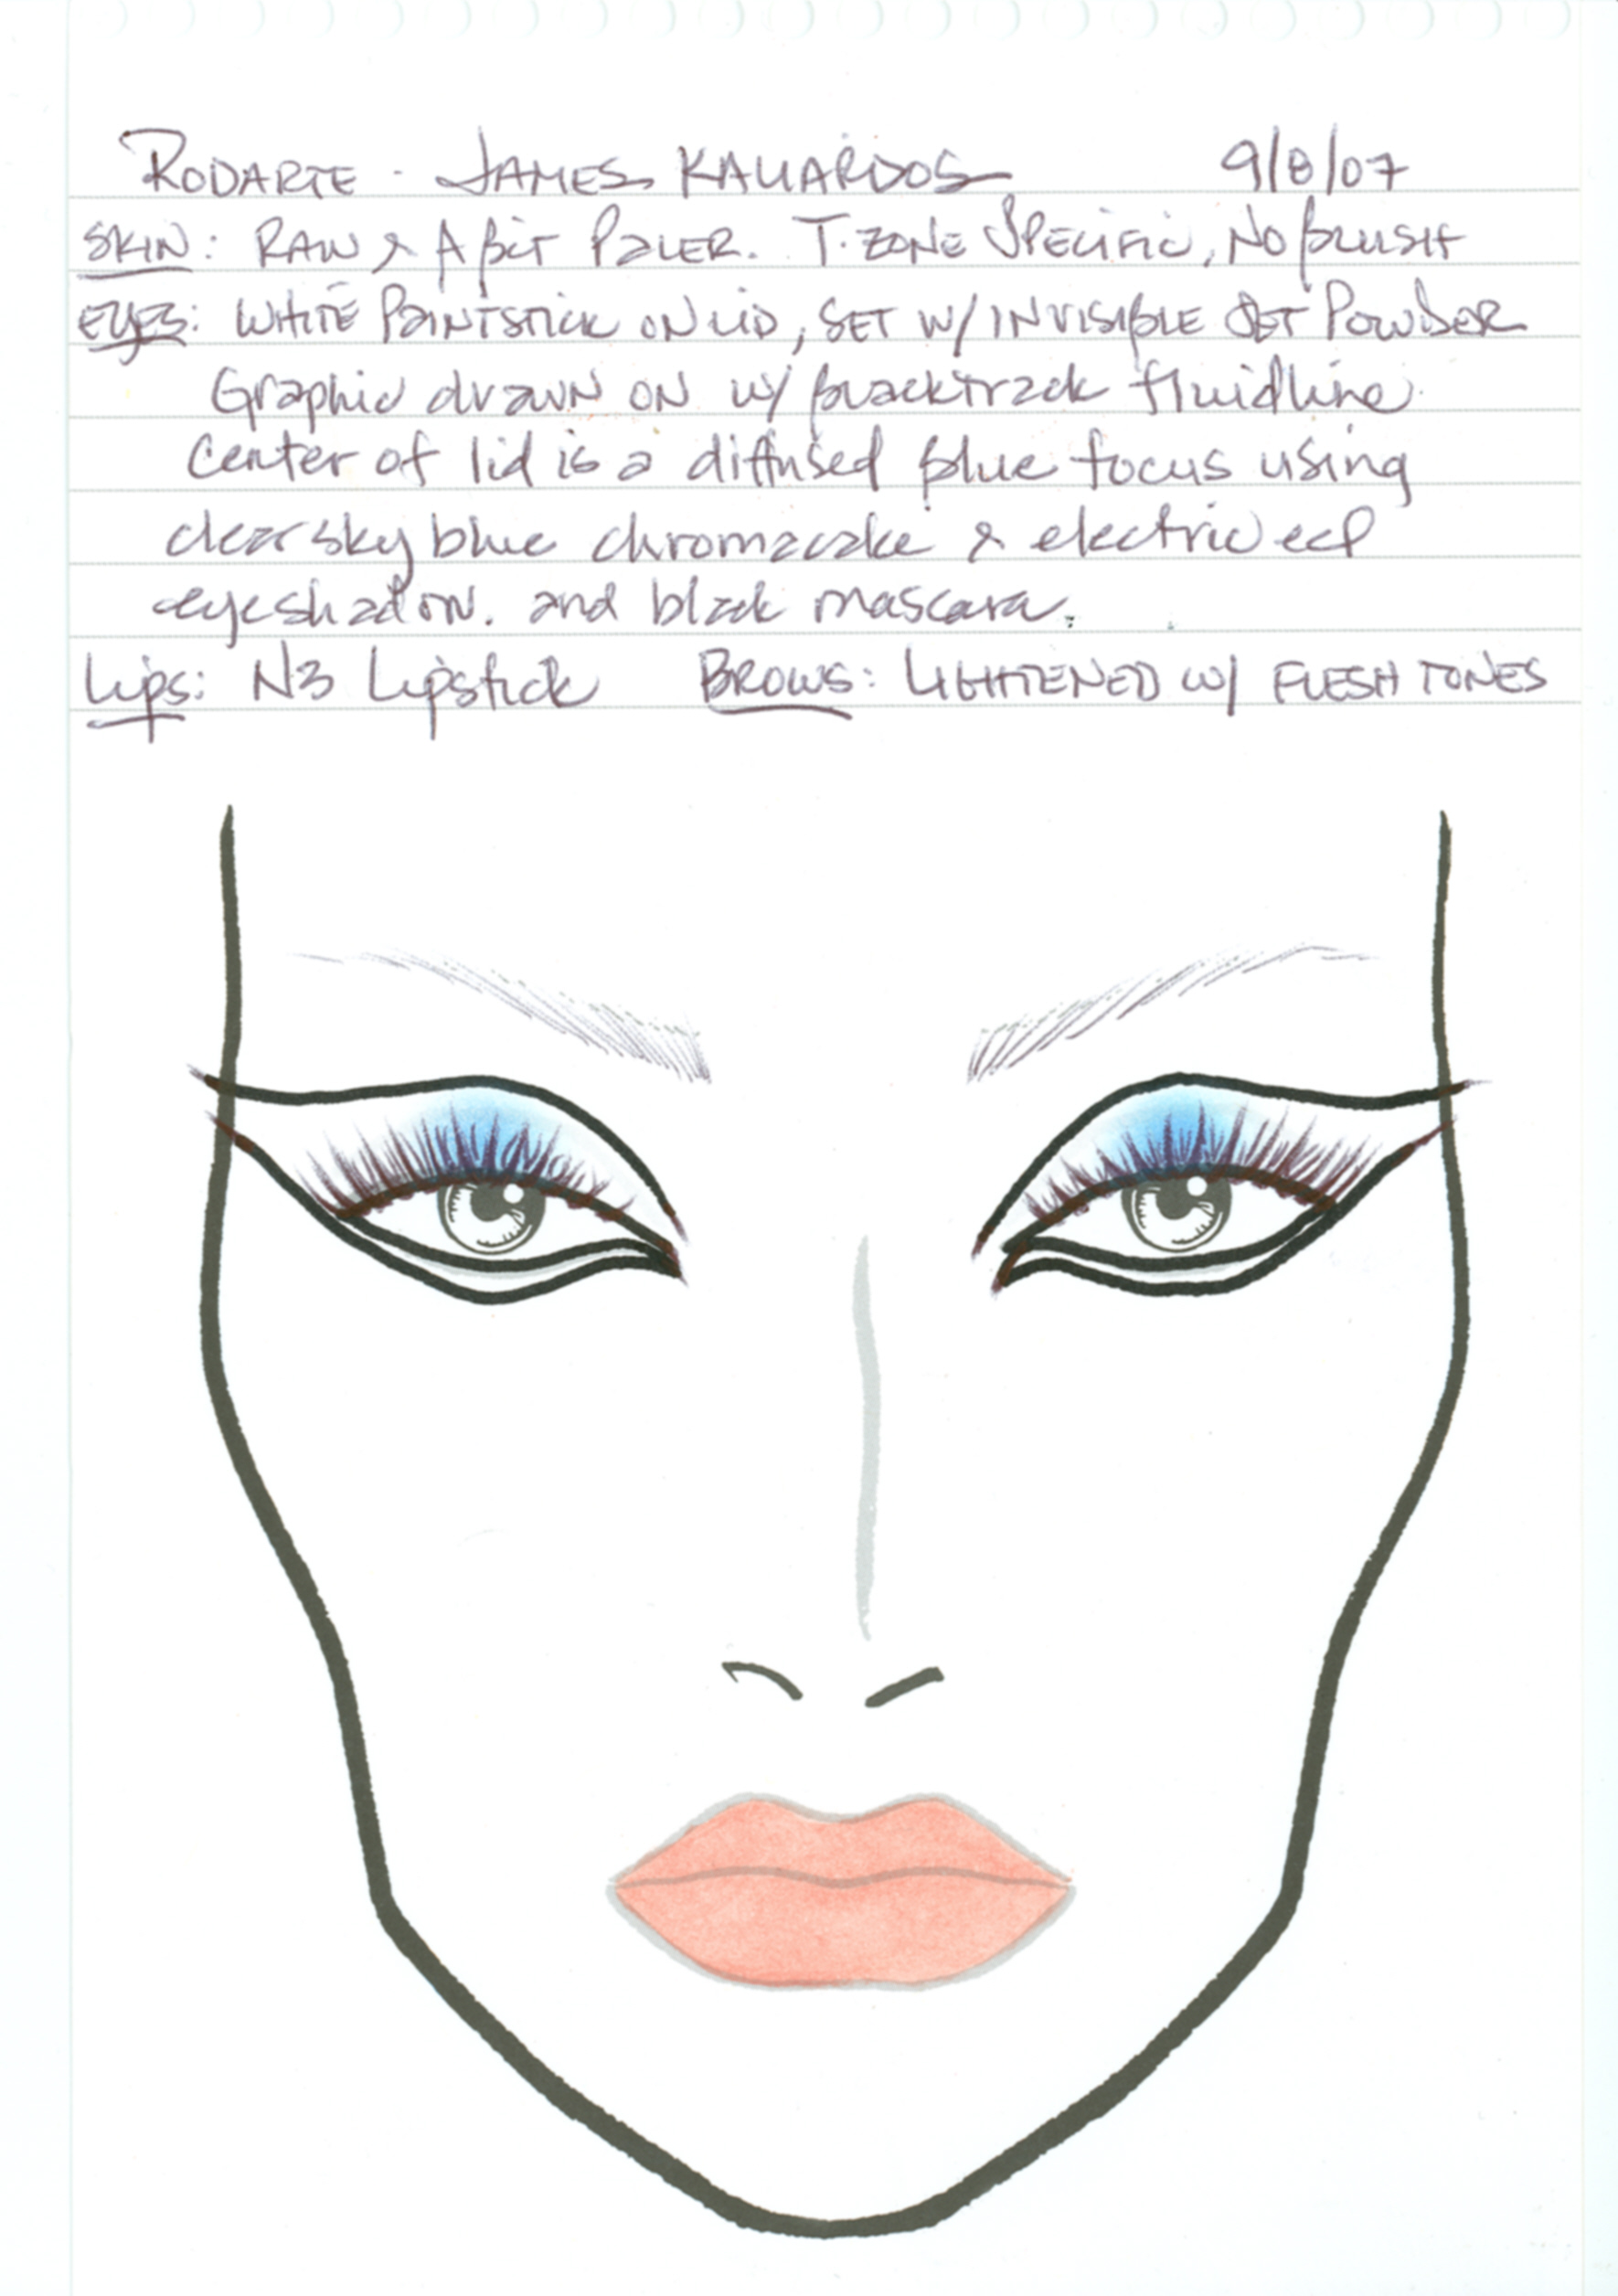 RODARTE - JAMES KALIARDOS 9/8/07
SKIN: RAW & A BIT PALER. T-ZONE SPECIFIC, NO BLUSH
EYES: WHITE PAINTSTICK ON LID, SET W/ INVISIBLE SET POWDER
Graphic drawn on w/ blacktrack fluidline.
Center of lid is a diffused blue focus using
clear sky blue chromacake & electric eel
eyeshadow. and black mascara.
Lips: N3 Lipstick BROWS: LIGHTENED W/ FLESH TONES